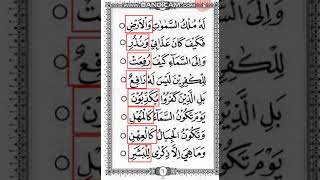 WWW.BANDICAM.COM
لَهُ مُلْكُ السَّمٰوٰتِ وَالْاَرْضِ
فَكَيْفَ كَانَ عَذَابِيْ وَنُذُرِ
وَاِلَى السَّمَآءِ كَيْفَ رُفِعَتْ
لِلْكٰفِرِيْنَ لَيْسَ لَهٗ دَافِعٌ
بَلِ الَّذِيْنَ كَفَرُوْا يُكَذِّبُوْنَ
يَوْمَ تَكُوْنُ السَّمَآءُ كَالْمُهْلِ
وَتَكُوْنُ الْجِبَالُ كَالْعِهْنِ
وَمَا هِيَ اِلَّا ذِكْرٰى لِلْبَشَرِ